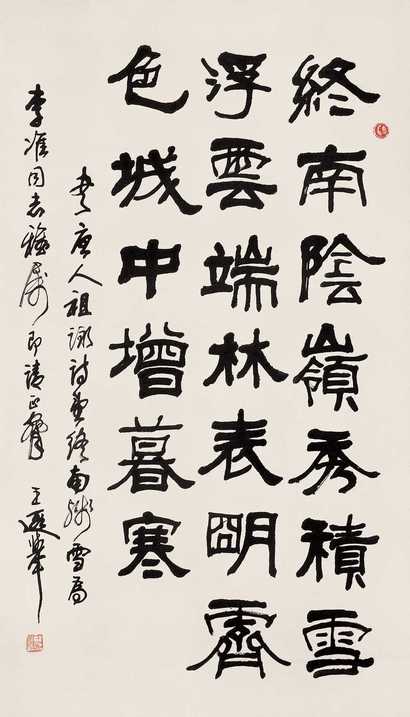 終南陰嶺秀積雪
浮雲端林表朙霽
色城中增暮寒
書唐人祖詠詩望終南殘雪為
李准同志雅屬即請正 王遐舉